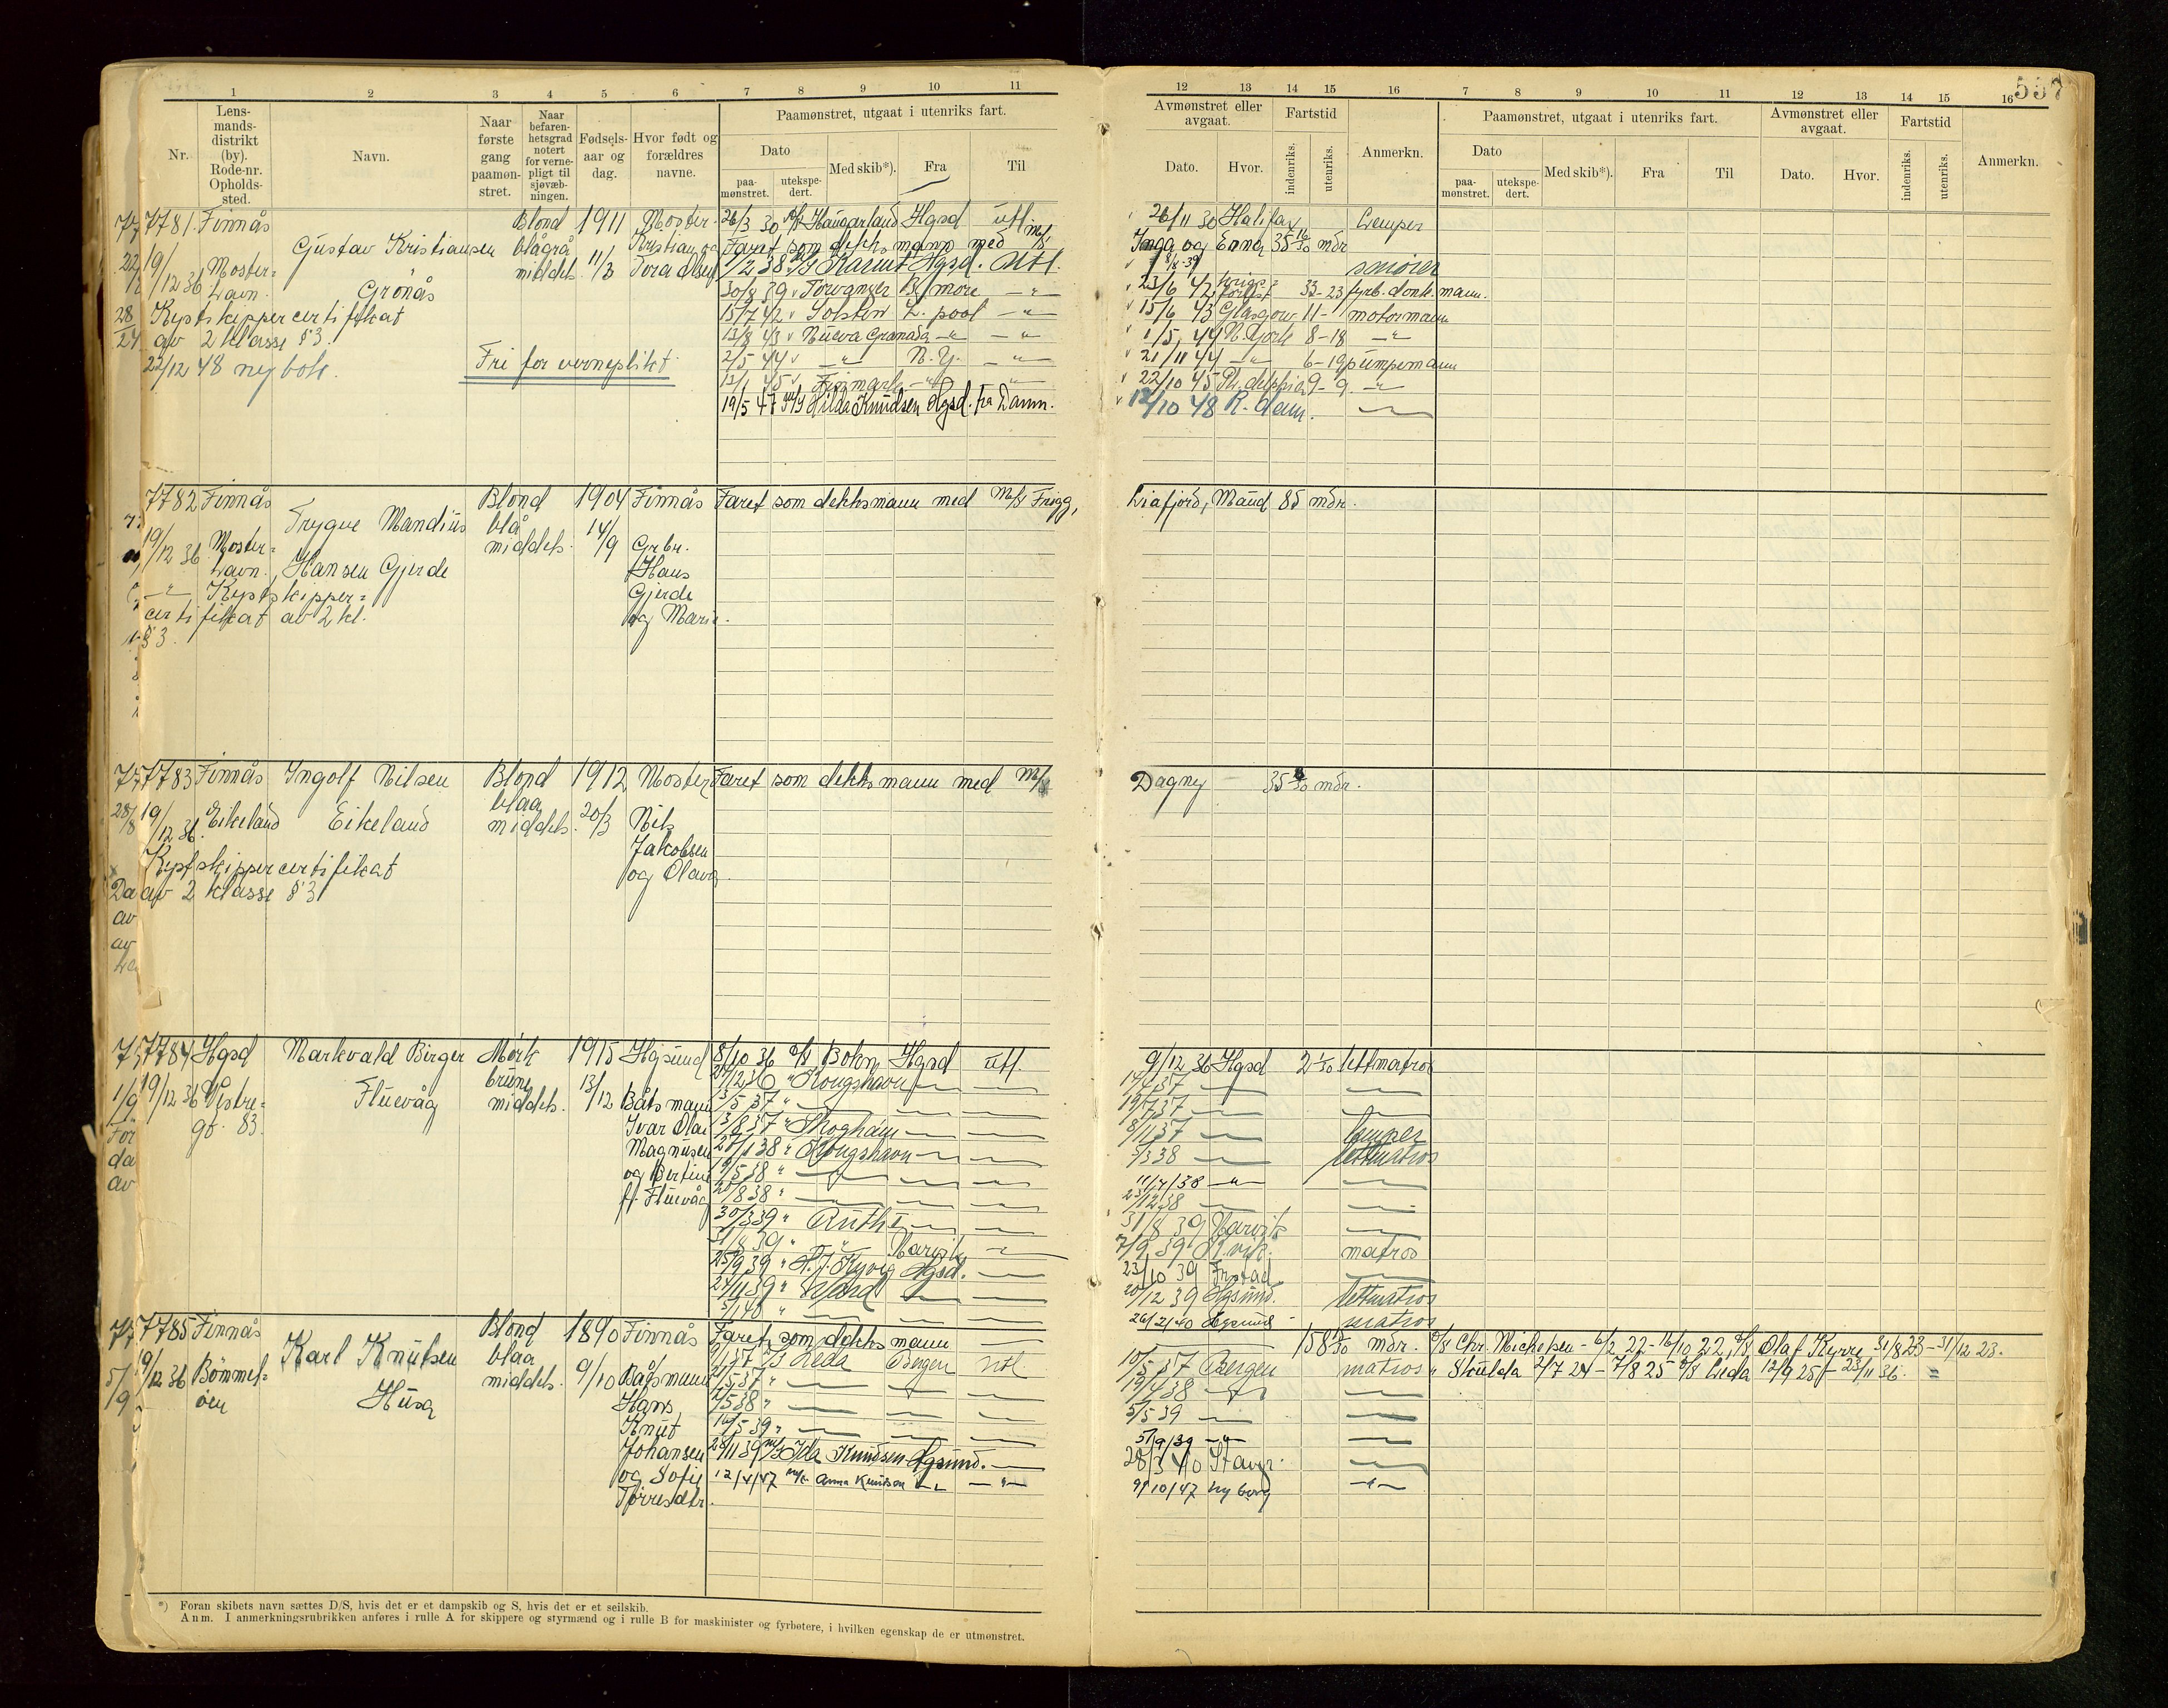 557
1 2 3 4 5 6 7 8 9 10 11
Nr.
Lens-
mands-
distrikt
(by).
Rode-nr.
Opholds-
sted.
Navn.
Naar
første
gang
paamøn-
stret.
Naar
befaren-
hetsgrad
notert
for verne-
pligt til
sjøvæb-
ningen.
Fødsels-
aar og
dag.
Hvor født og
forældres
navne.
Paamønstret, utgaat i utenriks fart.
Dato
paa-
mønstret.
utekspe-
dert.
Med skib*).
Fra
Til
12 13 14 15 16 7 8 9 10 11 12 13 14 15 16
Avmønstret eller
avgaat.
Dato.
Hvor.
Fartstid
indenriks.
utenriks.
Anmerkn.
Paamønstret, utgaat i utenriks fart.
Dato
paa-
mønstret.
utekspe-
dert.
Med skib*).
Fra
Til
Avmønstret eller
avgaat.
Dato.
Hvor.
Fartstid
indenriks.
utenriks.
Anmerkn.
7781. Finnås
19/12 36 Moster=
havn.
Gustav Kristiansen
Grönås
Kystskippercertifikat
av 2 klasse §3.
22/12 48 ny bok.
Fri for verneplikt.
Blond
blågrå
middels
1911
11/3
Moster
Kristian og
Tora Olsen
26/3 30 Haugarland Hgsd utl
Faret som dekksmann med M/S
1/2 38 Karmt Hgsd. Utl.
30/8 39 Torvanger B/more —"—
15/7 42 Solstein L. pool —"—
13/8 43 Nueva Granada —"— —"—
2/5 44 —"— N.Y. —"—
13/1 45 Finmark —"— —"—
19/5 47 M/S Hilda Knudsen Hgsd. fra Danm.
26/11 30 Halifax
Inga og Enna 35 16/30 mdr
8/8-39 smører
23/6 42 33-23 fyrb. donk.mann.
15/6 43 Glasgow 11- motormann
1/5 44 N. York 8-18 —"—
21/11 44 —"— 6-19 pumpemann
22/10 45 Ph. delphia 9-9. —"—
12/10 48 R. dam.
7782 Finnås
19/12 36 Moster=
havn.
Trygve Mandius
Hansen Gjerde
—"— Kystskipper=
certifikat av 2 kl.
§3.
Blond
blå
middels.
1904
14/9
Finnås
Grbr.
Hans
Gjerde
og Marie.
Faret som dekksmann med M/S Frigg,
Liafjord, Maud 85 mdr.
7783 Finnås
19/12 36. Eikeland
Ingolf Nilsen
Eikeland
Kystskippercertifikat
av 2 klasse §3
Blond
blaa
middels.
1912
20/3
Moster
Nils
Jakobsen
og Olava
Faret som dekksmann med M/S
Dagny 35 /30 mdr.
7784 Hgsd
19/12 36 Vestre=
gt. 83.
Markvald Birger
Fluevåg
Mörk
brune
middels.
1915
13/12
Hgsund
Båtsmann
Ivar Olai
Magnusen
og Bertine
f. Fluevåg
8/10 36 Bokn Hgsd utl.
" Kongshavn
3/5 37 "
3/8 37 " Skogham
27/1 38 " Kongshavn
/5 38 "
20/8 38 "
30/3 39 " Ruth I
31/8 39 " —"— Narvik
25/9 39 " Hgsd.
27/11 39 "
5/1 40 "
9/12 36 Hgsd 2 1/30 lettmatros
14/4 37
19/7 37
8/11 37
/3 38 lettmatros
11/7/38 —"—
23/12 38
31/8 39 Narvik
7/9 39 N.vik. matros
23/10 39 Frstad
20/12 39 Hgsund. lettmatros
26/2/40 Hgsund matros
7785 Finnås
19/12 36 Bömmel=
öen
Karl Knutsen
Husa
Blond
blaa
middels.
1890
9/10
Finnås
Båtsmann
Hans
Knut
Johansen
og Sofie
Torresdtr.
Faret som dekksmann
9/1 37 Leda Bergen utl.
21/5 37 "
1/5 38 "
16/5 39 "
28/11 39 M/S Ida Knudsen Hgsund.
12/4/47 Anna Knudsen —"— —"—
158 mdr. Chr. Michelsen - 6/2 22 - 16/10 22, Olaf Kyrre 31/8 23 - 31/12 23.
10/5 37 Bergen matros
" Skulda 2/7 24 - 7/8 25 Leda 12/9 25 - 23/11 36.
19/4 38
5/5 39
5/9/39 —"—
28/3 40 Stavgr.
9/10/47 —"—
*) Foran skibets navn sættes D/S, hvis det er et dampskib og S, hvis det er et seilskib.
Anm. I anmerkningsrubrikken anføres i rulle A for skippere og styrmænd og i rulle B for maskinister og fyrbøtere, i hvilken egenskap de er utmønstret.